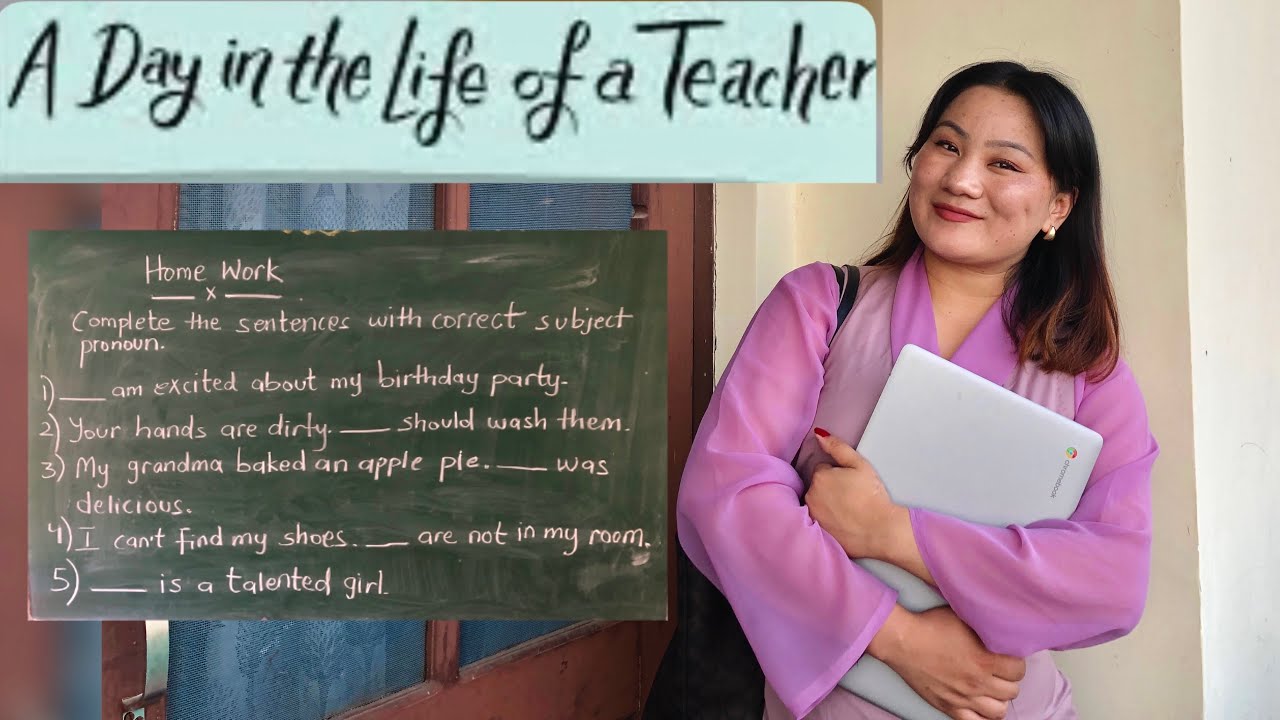 A Day in the Life of a Teacher
Home Work
x
Complete the sentences with correct subject
pronoun.
1) ___ am excited about my birthday party.
2) Your hands are dirty. ___ should wash them.
3) My grandma baked an apple pie. ___ was
delicious.
4) I can't find my shoes. ___ are not in my room.
5) ___ is a talented girl.
chromebook